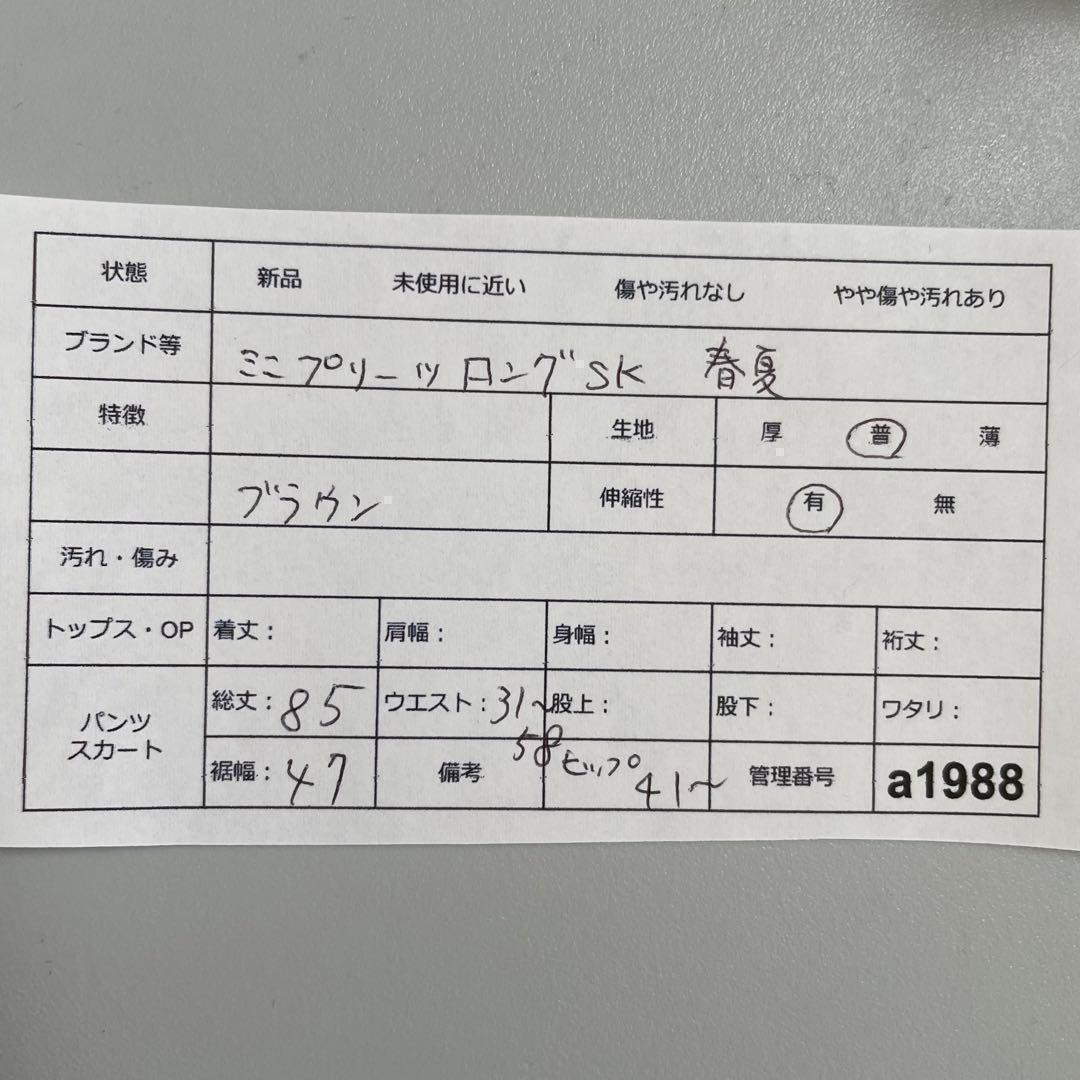 状態 新品 未使用に近い 傷や汚れなし やや傷や汚れあり
ブランド等 ミニプリーツロングSK 春夏
特徴 生地 厚 普 薄
ブラウン 伸縮性 有 無
汚れ・傷み
トップス・OP 着丈: 肩幅: 身幅: 袖丈: 裄丈:
パンツ
スカート
総丈:85 ウエスト:31〜58 股上: 股下: ワタリ:
裾幅:47 備考 ヒップ41〜 管理番号 a1988